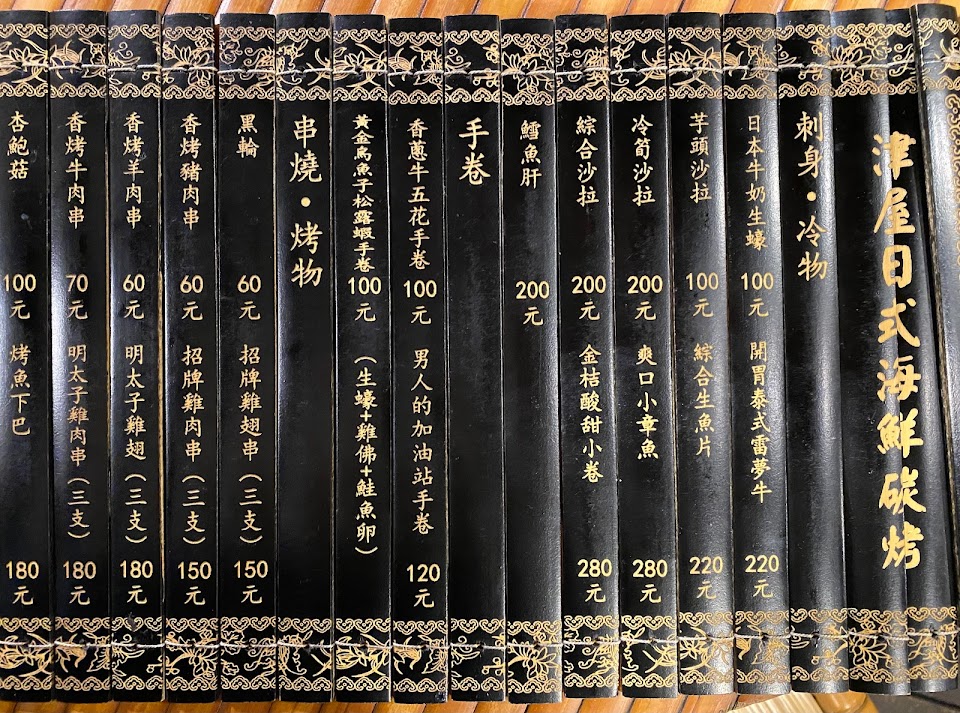 津屋日式海鮮碳烤
刺身·冷物
日本牛奶生蠔 100元 開胃泰式雷夢牛 220元
芋頭沙拉 100元 綜合生魚片 220元
冷筍沙拉 200元 爽口小章魚 280元
綜合沙拉 200元 金桔酸甜小卷 280元
鱈魚肝 200元
手卷
香蔥牛五花手卷 100元 男人的加油站手卷 120元
黃金馬魚子松露蝦手卷 100元 (生蠔+雞佛+鮭魚卵)
串燒·烤物
黑輪 60元 招牌雞翅串(三支) 150元
香烤豬肉串 60元 招牌雞肉串(三支) 150元
香烤羊肉串 60元 明太子雞翅(三支) 180元
香烤牛肉串 70元 明太子雞肉串(三支) 180元
杏鮑菇 100元 烤魚下巴 180元